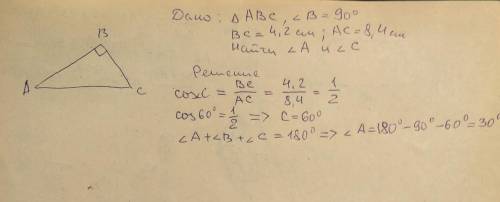 B
A
C
Дано: Δ ABC, ∠B = 90°
BC = 4,2 см; AC = 8,4 см
Найти ∠A и ∠C
Решение
cos C = BC/AC = 4,2/8,4 = 1/2
cos 60° = 1/2 => C = 60°
∠A + ∠B + ∠C = 180° => ∠A = 180° - 90° - 60° = 30°